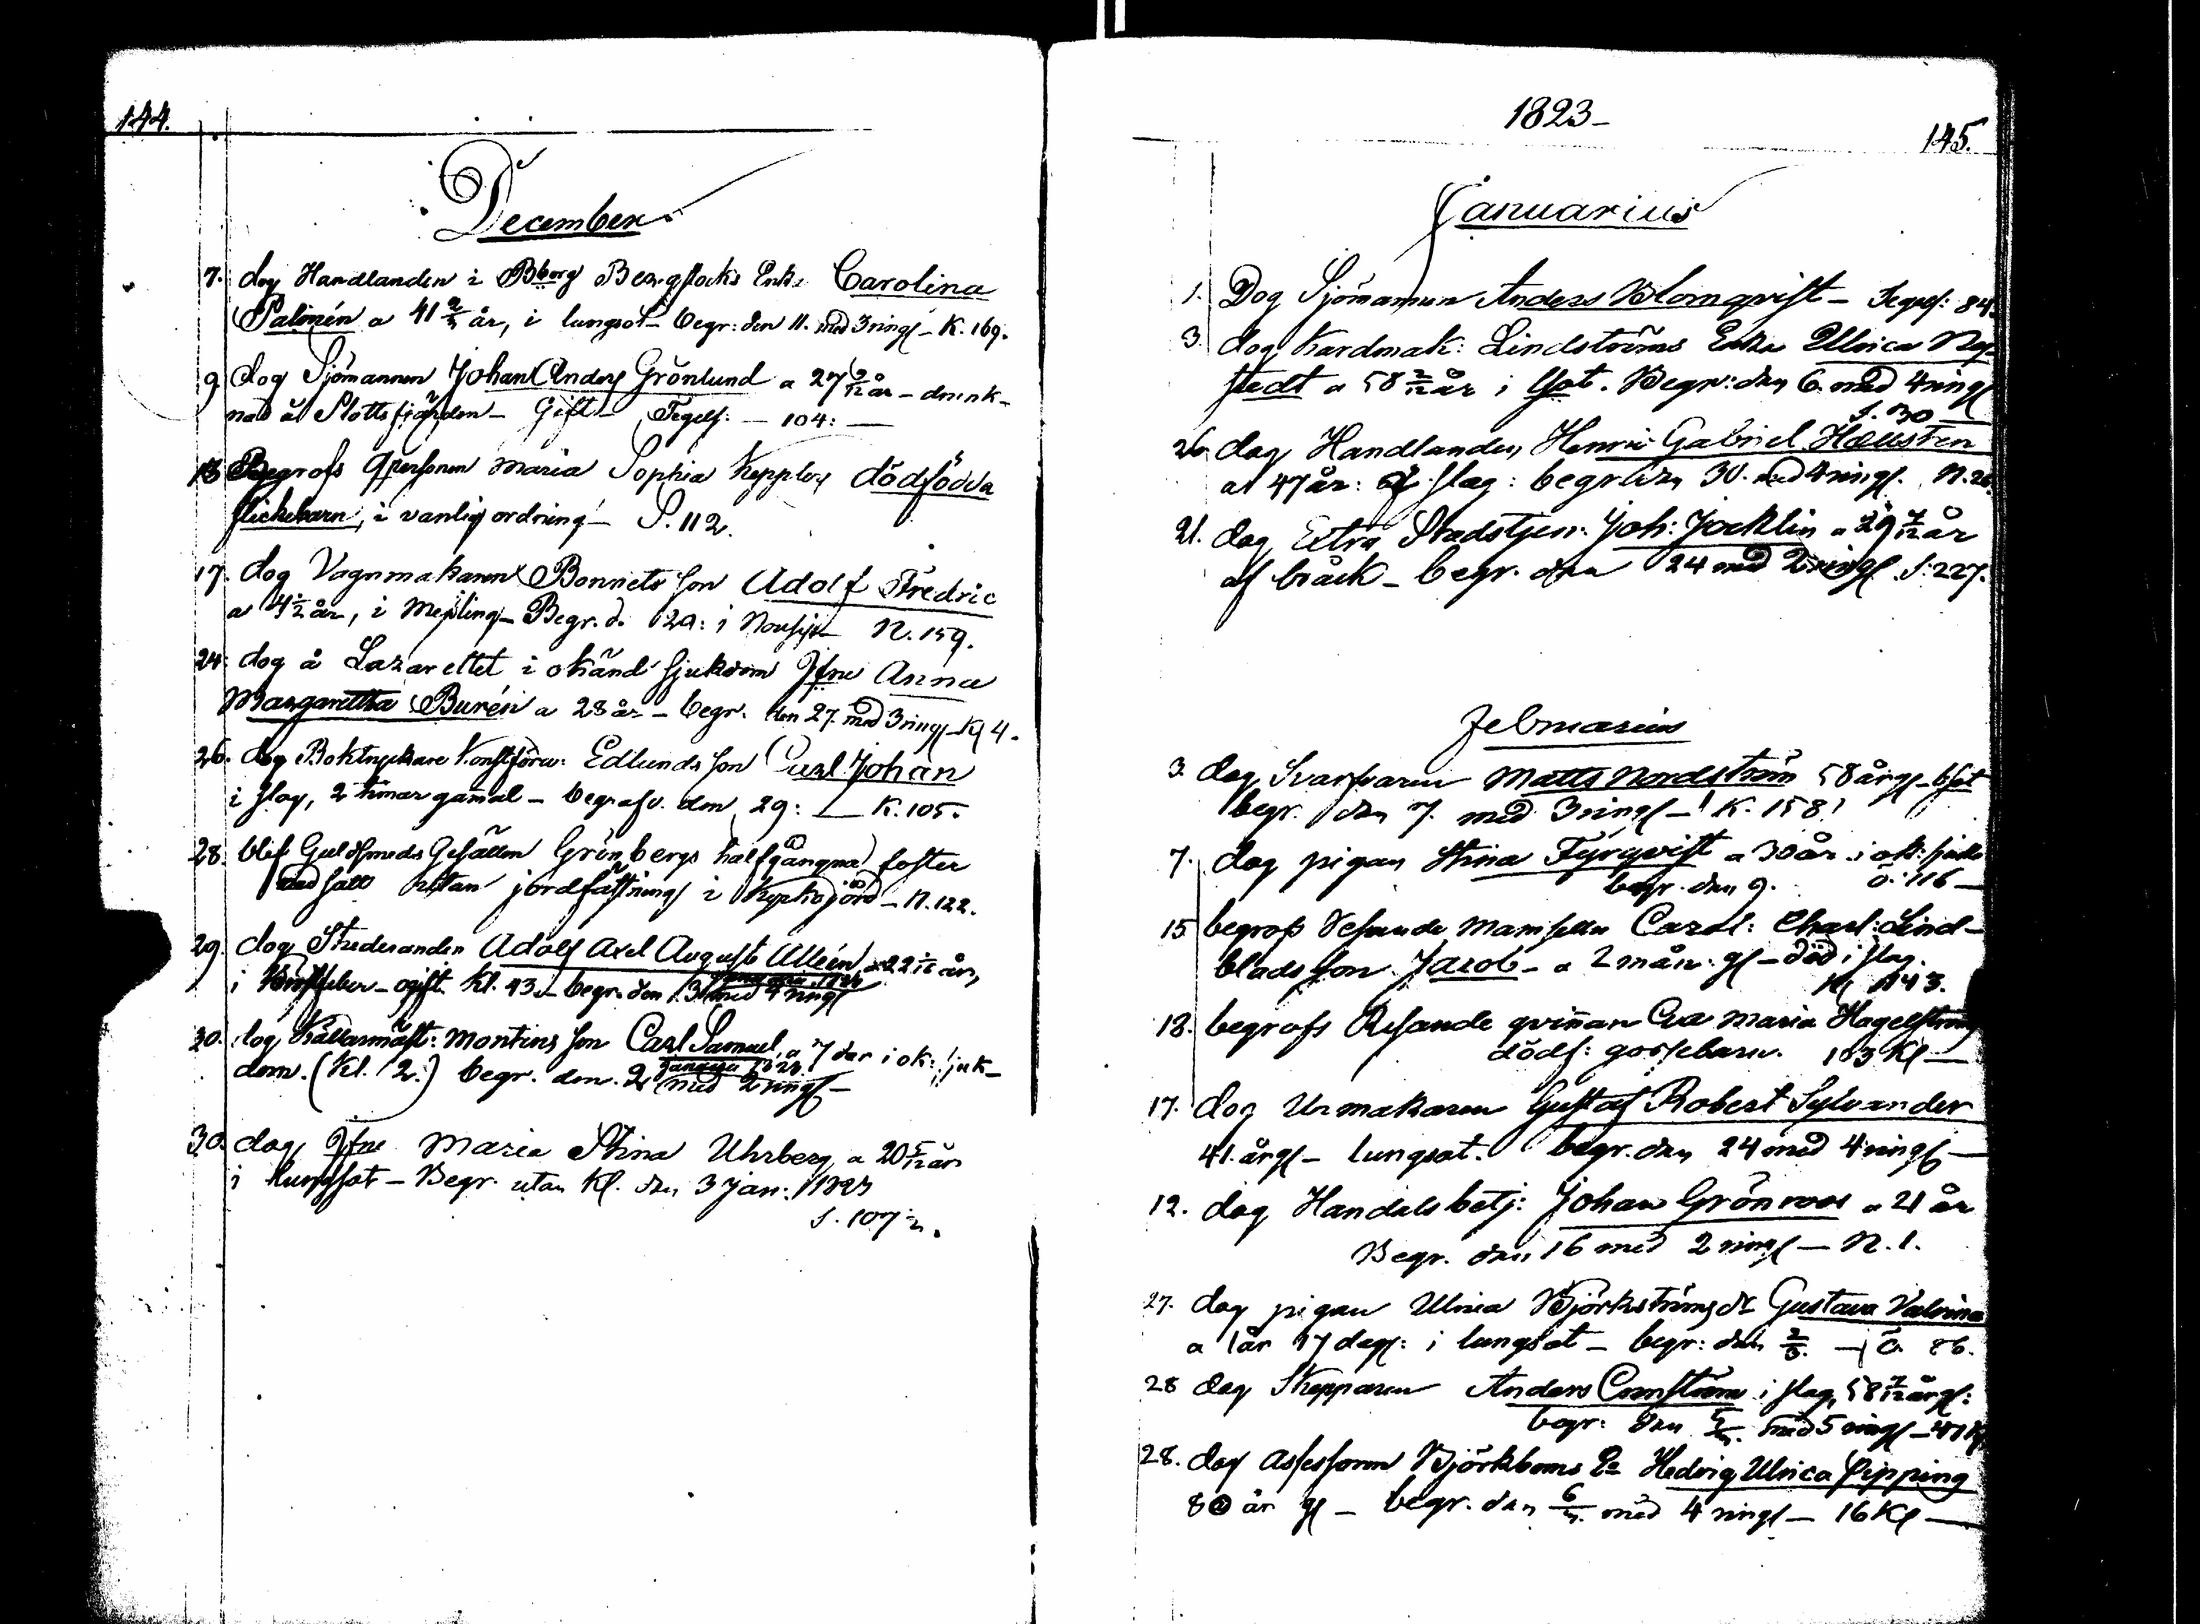 144.
December
7. dog Handlanden i Bborg Bergstocks Enka Carolina
Palmén a 41 år, i lungsot - begr: den 11. med 3 ring - K. 169.
9. dog Sjömannen Johan Anders Grönlund a 27 2/12 år - drunk-
nad å Slottsfjärden - Gift - Tegels: - 104: -
13 Begrofs Qpersonen Maria Sophia Kepplers dödfödda
flickebarn, i vanlig ordning - S. 112.
17. dog Vagnmakaren Bonnets son Adolf Fredric
a 4 1/2 år, i Meßling - Begr. d. 29: i N. 159.
24. dog å Lazarettet i okänd sjukdom Jfru Anna
Margaretha Burén a 28 år - begr. den 27. med 3 ring - Kl 4.
26. dog Boktryckare Konstförv: Edlunds son Carl Johan
i slag, 2 timar gamal - begrafv. den 29: - K. 105.
28. blef Guldsmeds Gesällen Grönbergs halfgångna foster
nedsatt utan jordfästning i Kyrkojord - N. 122.
29. dog Studeranden Adolf Axel August Alléin a 22 år,
i - ogift. Kl. 43. - begr. den 3 med 4 ring
30. dog Källarmäst: Montins son Carl Samuel, a 7 dar i ok: sjuk-
dom. (Kl. 2:) begr. den 2 Januari 1823 med 2 ring -
30. dog Jfru Maria Stina Uhrberg a 20 5/12 år
i lungsot - Begr. utan Kl. den 3 Jan: 1823
S. 107
1823-
145.
Januarius
1. Dog Sjömannen Anders Blomqvist - Tegels: 84.
3. dog Kardmak: Lindströms Enka Ulrica Ny-
stedt a 58 2/12 år i . Begr: den 6. med 4 ring
S. 30
26 dog Handlanden Henric Gabriel Hællsten
a 47 år: af slag: begr. den 30. med 4 ring. N. 26.
21. dog Extra Stadstjen: Joh: Jocklin a 29 7/12 år
af bråck - begr. den 24 med 2 ring. S: 227.
Februarius
3. dog Svarfvaren Matts Nordström 58 årg - bsot
begr. den 7. med 3 ring - K. 158
7. dog pigan Stina Fyrqvist a 30 år i ok:
begr. den 9. ö. 116 -
15 begrofs Resande Mamsellen Carol: Charl: Lind-
blads son Jacob - a 2 mån. gl - död i slag.
Kl 143.
18. begrofs Resande qvinnan Eva Maria Hagelströms
dödf: gossebarn. 103 Kl -
17. dog Urmakaren Gustaf Robert Sylvander
41. årg - lungsot. begr. den 24 med 4 ring -
12. dog Handelsbetj: Johan Grönroos a 21 år
Begr. den 16 med 2 ring - N. 1.
27. dog pigan Ulrica Björkströms dr Gustava Valvina
a 1 år 17 dag: i lungsot - begr: den 2/3. - ö. 86.
28 dog Skepparen Anders Cornström i slag, 58 7/12 årg:
begr. den 5/3. med 5 ring - 47 Kl
28. dog Assessoren Björkboms Ea Hedvig Ulrica Pipping
80 år gl - begr. den 6/3. med 4 ring - 16 Kl -